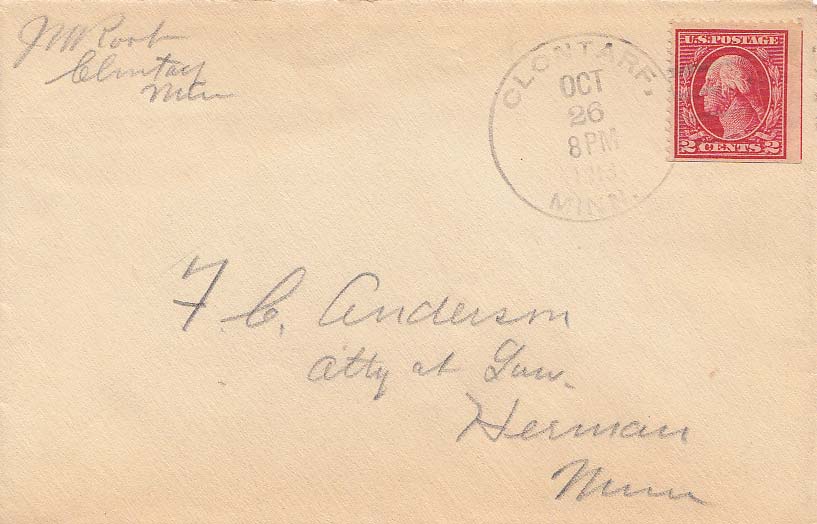 J W Root
Clontarf
Minn
CLONTARF,
OCT
26
8 PM
MINN.
U.S. POSTAGE
2 CENTS 2
F. C. Anderson
Atty at Law.
Herman
Minn